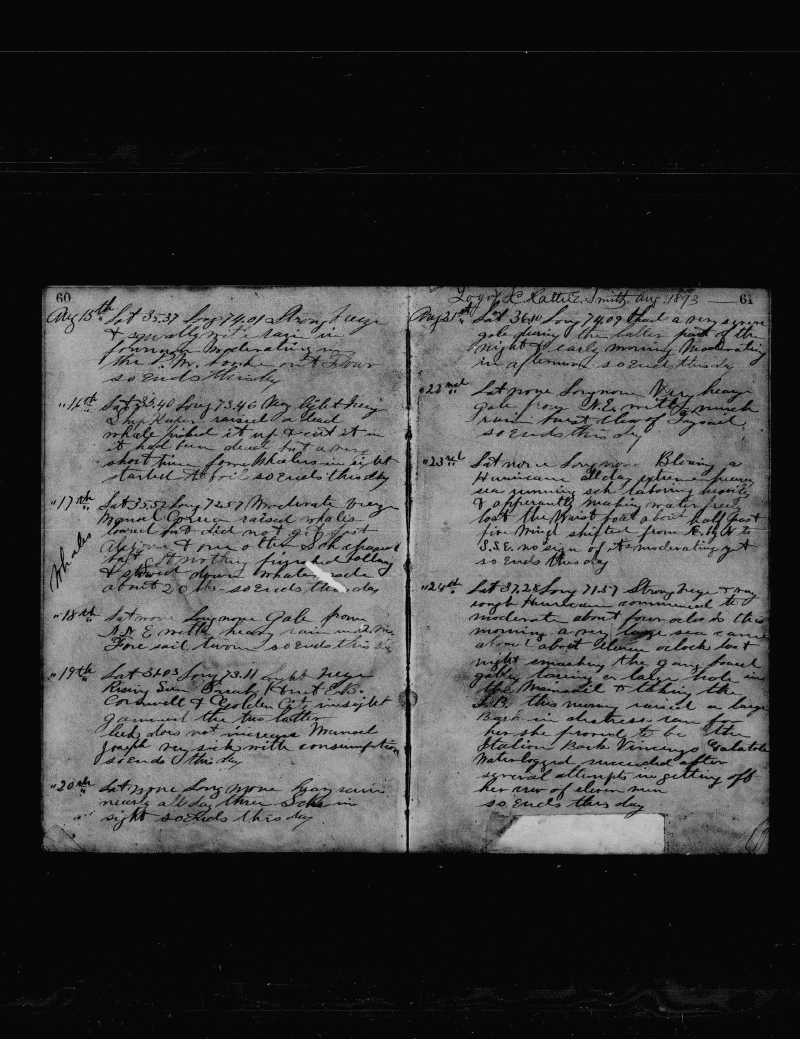 60
Aug 15th Lat 35.37 Long 74.01 Strong breeze
& squally with rain in
forenoon Moderating in
the P.M.
so Ends this day
"16th Lat 35.40 Long 73.46 Very light breeze
raised a dead
whale picked it up & cut it in
it had been dead but a very
short time some Whalers in sight
started to boil so Ends this day
"17th Lat 35.52 Long 72.57 Moderate breeze
Manuel Correia raised whales
lowered but did not get fast
& one other Sch
nothing finished boiling
& stowed down whale made
about 20 bbls so Ends this day
Whales
"18th Lat none Long none Gale from
N.N.E. with heavy rain
Fore sail so Ends this day
"19th Lat 36.03 Long 73.11 light breeze
Rising Sun E.B.
Conwell & Golden City in sight
gammed the two latter
does not increase Manuel
Joseph very sick with consumption
so Ends this day
"20th Lat none Long none rain
nearly all day three Schs in
sight so Ends this day
Log of Hattie E. Smith, Aug. 1893 61
Aug 21st Lat 36.10 Long 74.09 Had a very severe
gale during the latter part of the
night & early morning Moderating
in afternoon so Ends this day
"22nd Lat none Long none Very heavy
Gale from N.E. with much
rain
so Ends this day
"23rd Lat none Long none Blowing a
Hurricane all day extreme heavy
sea running sch laboring heavily
& apparently making water freely
lost the Waist boat about half past
five Wind shifted from to
S.S.E. no sign of its moderating yet
so Ends this day
"24th Lat 37.28 Long 71.57 Strong breeze & very
rough Hurricane commenced to
moderate about four oclock this
morning a very large sea came
aboard about Eleven oclock last
night smashing the gang board
galley tearing a large hole in
the Mainsail & taking the
this morning raised a large
Bark in distress ran for
her she proved to be the
Italian Bark Vincenzo Galatola
Waterlogged succeeded after
several attempts in getting off
her crew of eleven men
so Ends this day